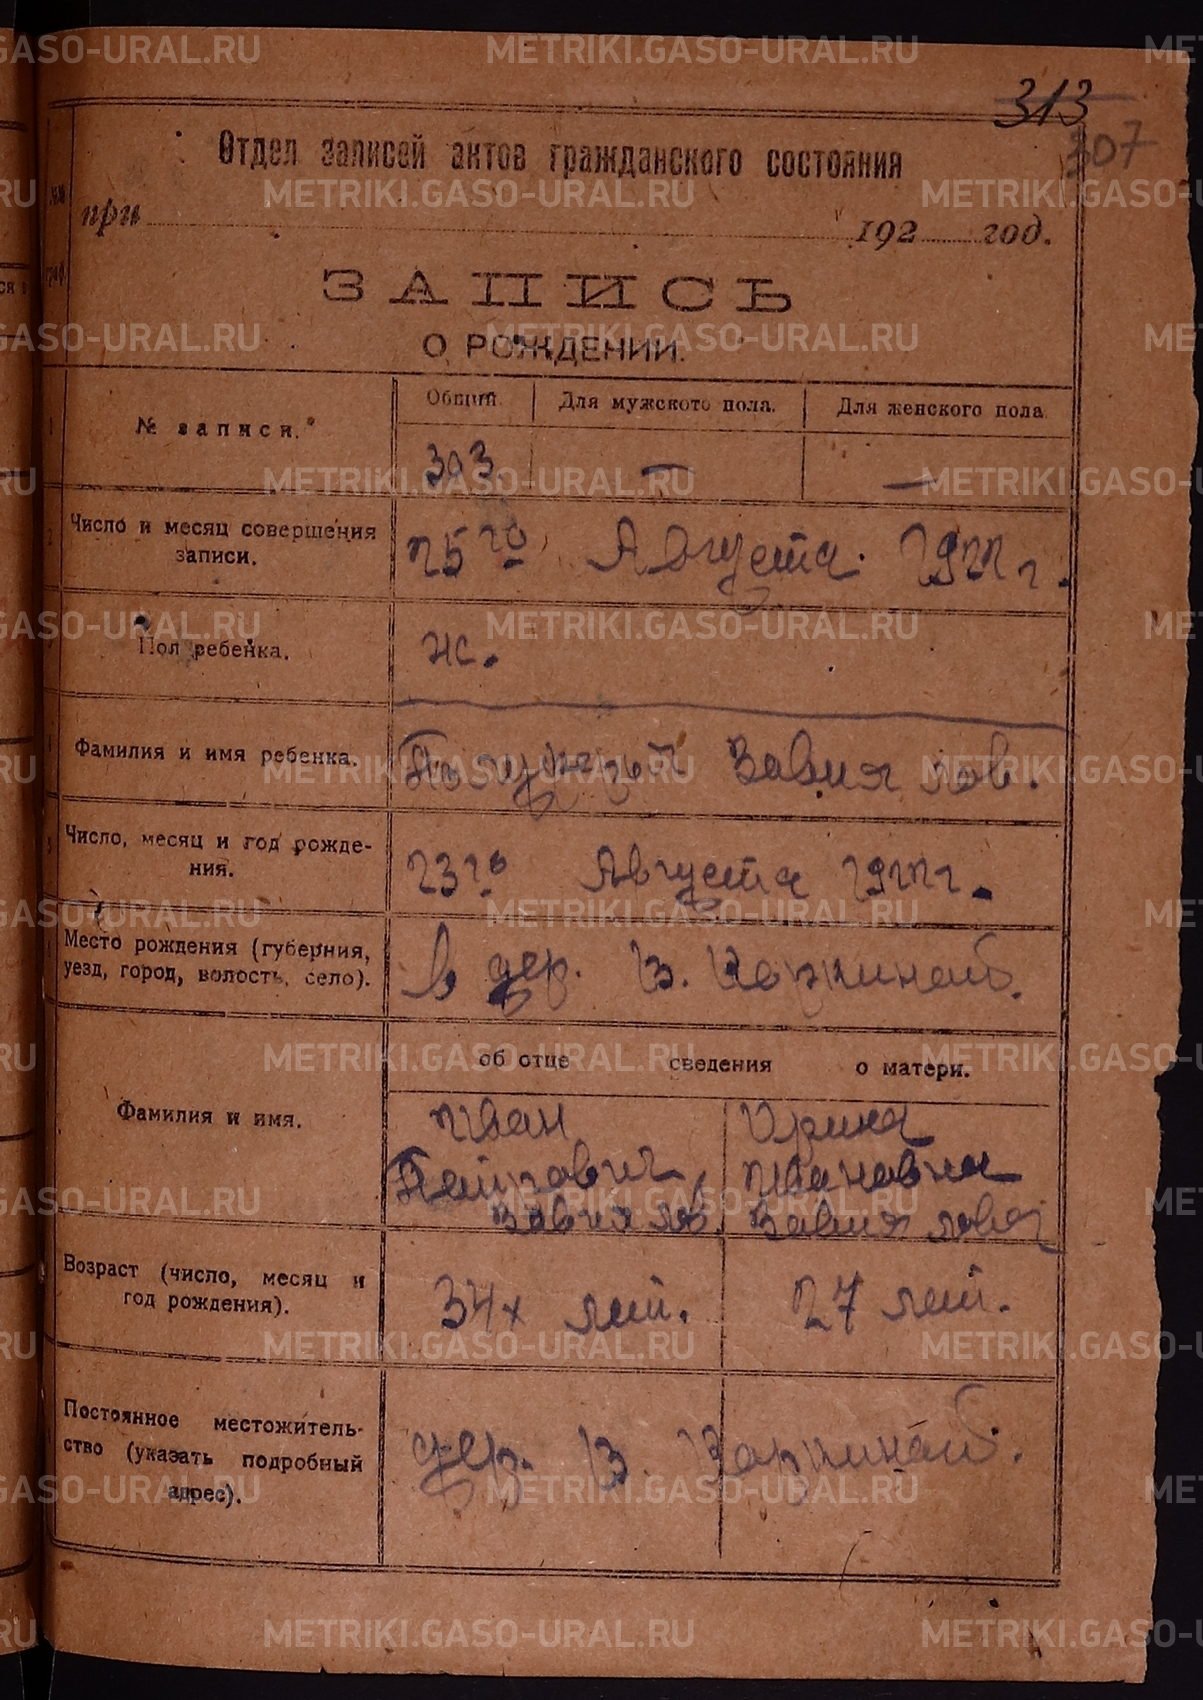 313
307
Отдел записей актов гражданского состояния
при 192 год.
ЗАПИСЬ
О РОЖДЕНИИ.
№ записи.
Общий. Для мужского пола. Для женского пола
303. — —
Число и месяц совершения
записи.
25го Августа. 1922 г.
Пол ребенка.
ж.
Фамилия и имя ребенка.
Завиялов.
Число, месяц и год рожде-
ния.
23го Августа 1922 г.
Место рождения (губерния,
уезд, город, волость, село).
в дер. В.
об отце сведения о матери.
Фамилия и имя.
Иван Ирина
Ивановна
Завиялов. Завиялова
Возраст (число, месяц и
год рождения).
34х лет. 27 лет.
Постоянное местожитель-
ство (указать подробный
адрес).
дер. В.
METRIKI.GASO-URAL.RU